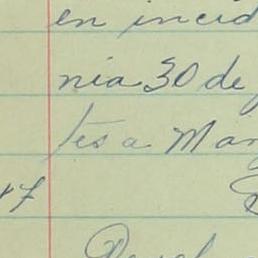 en incid
nia 30 de
tes a Man
47